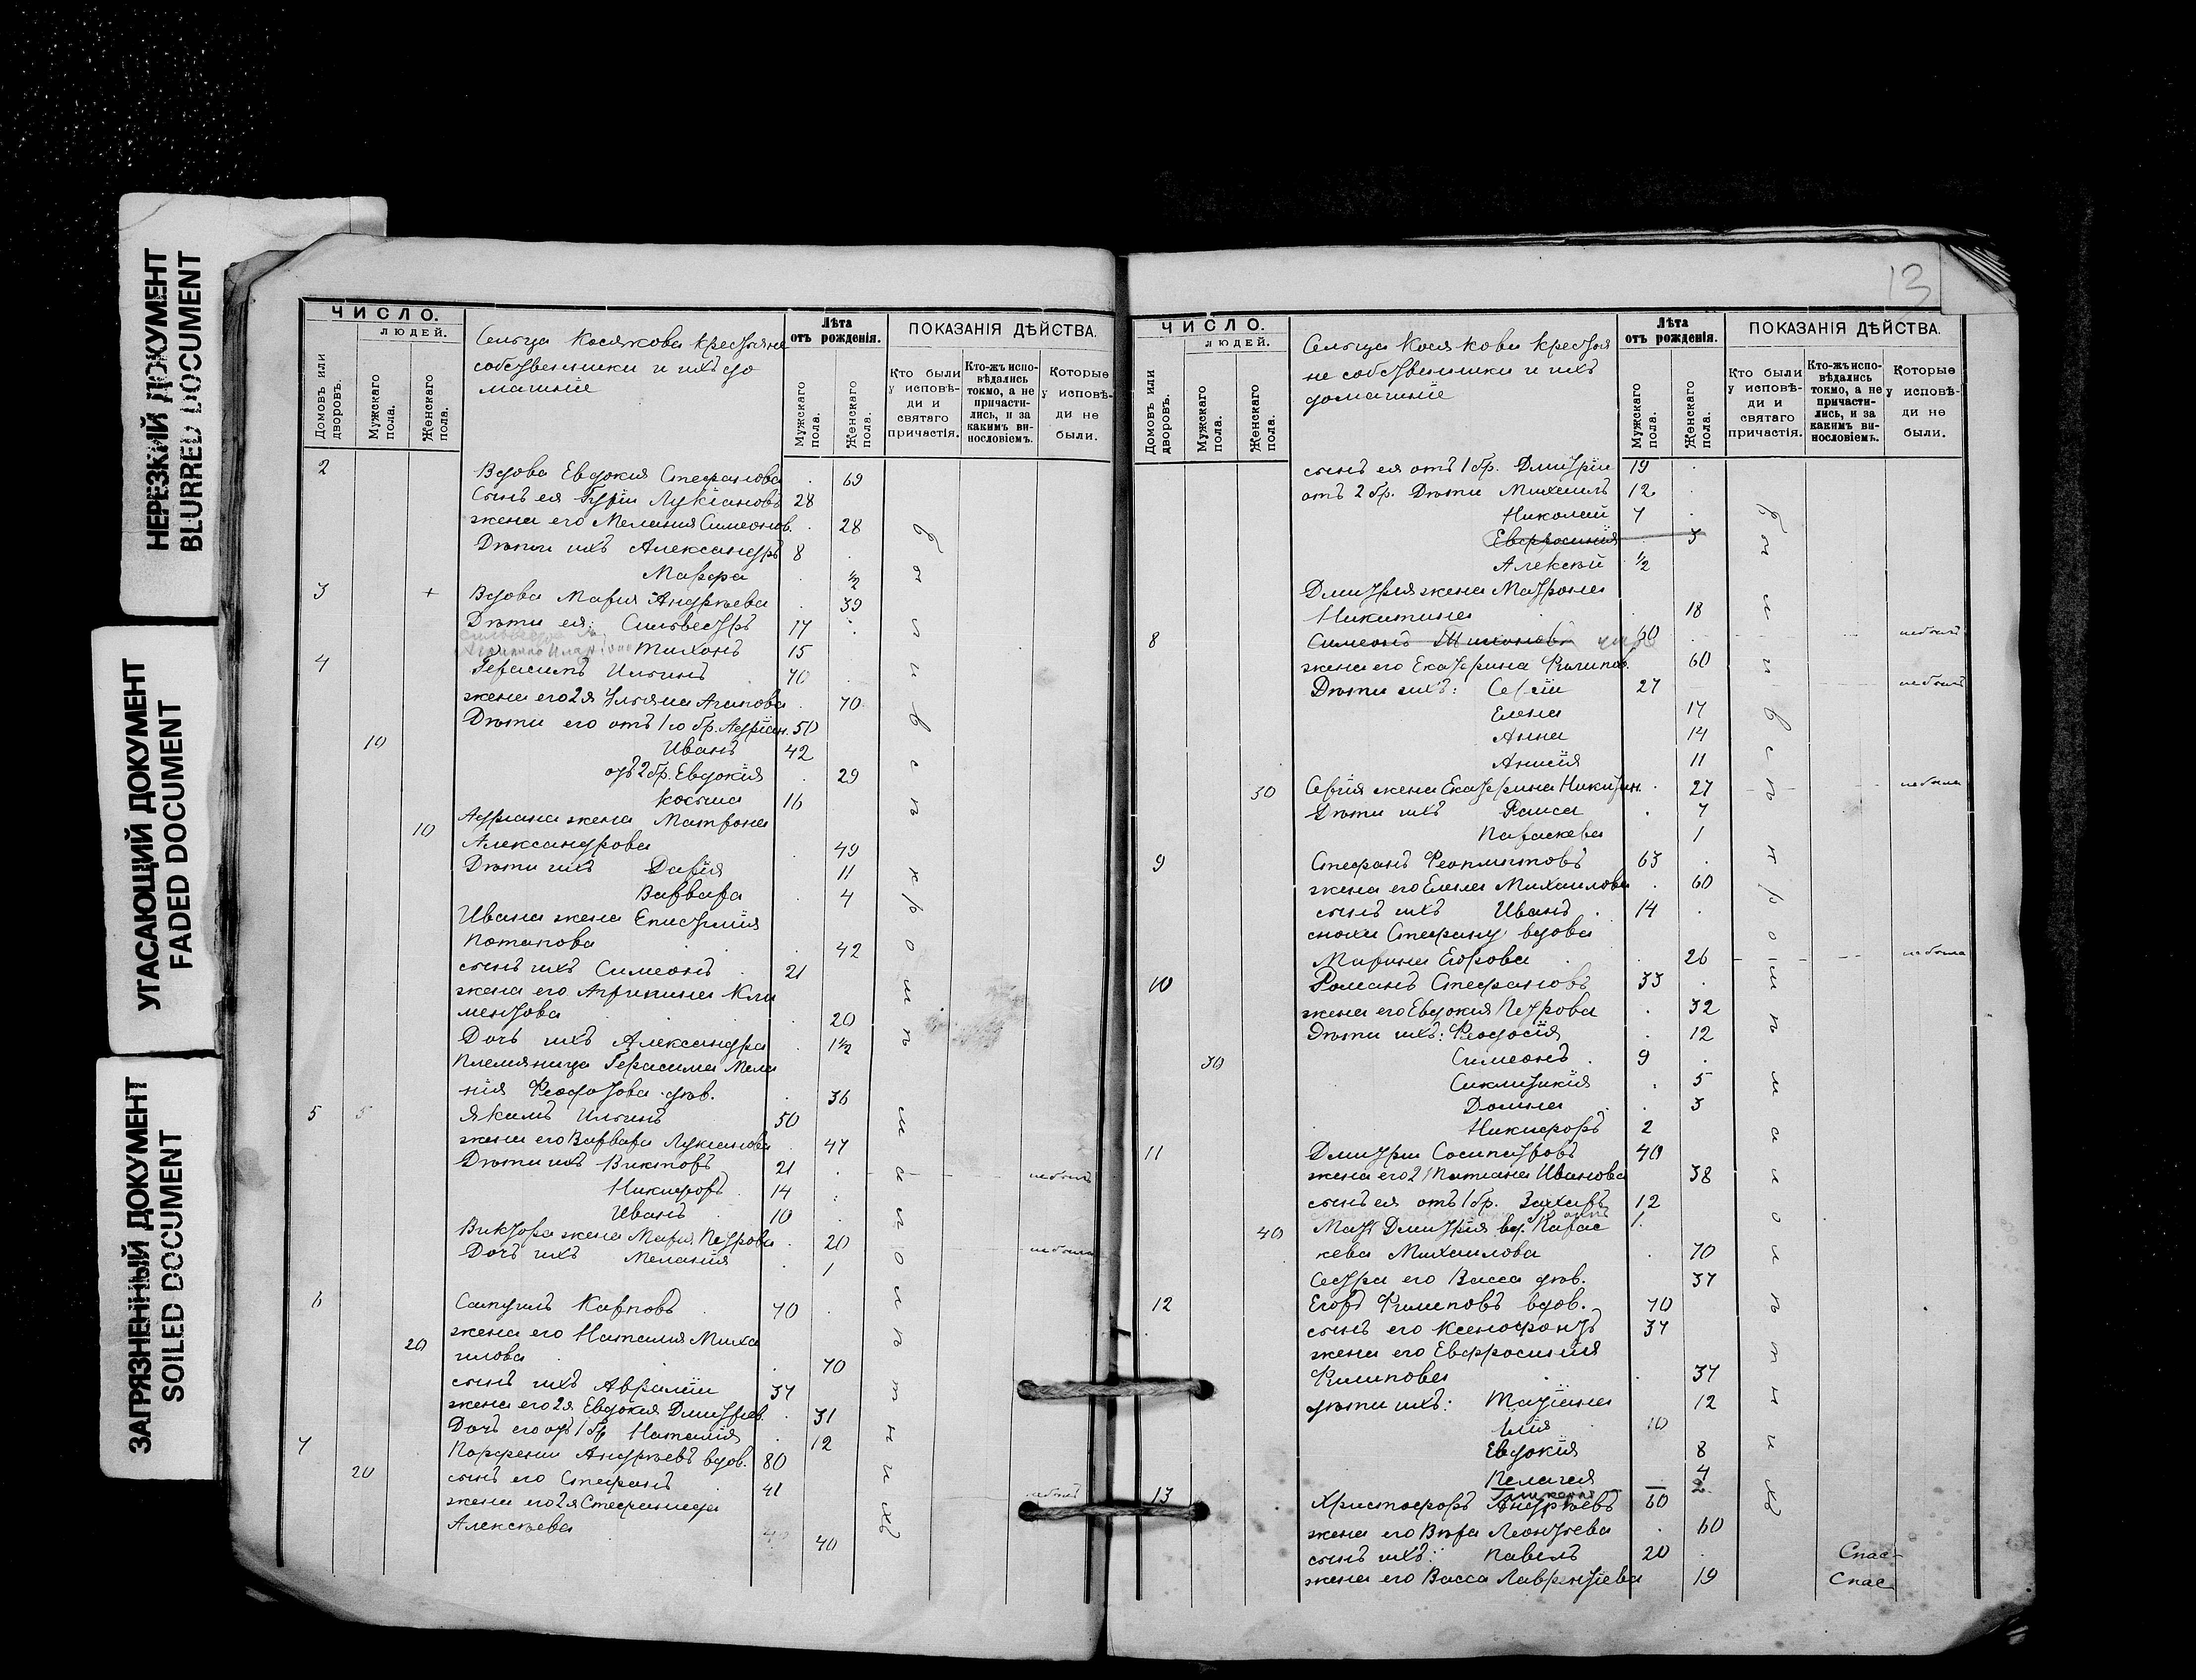 НЕРЕЗКИЙ ДОКУМЕНТ
BLURRED DOCUMENT
УГАСАЮЩИЙ ДОКУМЕНТ
FADED DOCUMENT
ЗАГРЯЗНЕННЫЙ ДОКУМЕНТ
SOILED DOCUMENT
ЧИСЛО.
ЛЮДЕЙ.
Домовъ или дворовъ.
Мужскаго пола.
Женскаго пола.
Сельца Косякова крестьяне
собственники и ихъ до
машніе
Лѣта
отъ рожденія.
Мужскаго пола.
Женскаго пола.
ПОКАЗАНІЯ ДѢЙСТВА.
Кто были у исповѣди и святаго причастія.
Кто-жъ исповѣдались токмо, а не причастились, и за какимъ винословіемъ.
Которые у исповѣди не были.
2 Вдова Евдокия Стефанова 69
Сынъ ея Гурій Лукіановъ 28
жена его Мелания Симеонов. 28
Дѣти ихъ Александръ 8
Марфа ½
3 + Вдова Мария Андреева 39
Дѣти ея: Сильвестръ 17
Тихонъ 15
4 Герасимъ Ильинъ 70
жена его 2я Ульяна Агапова 70
Дѣти его отъ 1го бр. Адріан. 50
10 Иванъ 42
отъ 2 бр. Евдокія 29
Косьма 16
10 Адриана жена Матрона
Александрова 49
Дѣти ихъ Дарія 11
Варвара 4
Ивана жена Епистимия
Потапова 42
сынъ ихъ Симеонъ 21
жена его Агрипина Кли
ментова 20
Дочь ихъ Александра 1½
Племяница Герасима Мела
нія Феодотова дѣв. 36
5 5 Якимъ Ильинъ 50
жена его Варвара Лукианова 47
Дѣти ихъ Викторъ 21 не былъ
Никифоръ 14
Иванъ 10
Виктора жена Мария Петрова 20 не была
Дочь ихъ Мелания 1
6 Самуилъ Карповъ 70
20 жена его Наталия Миха
илова 70
сынъ ихъ Авралій 37
жена его 2я Евдокия Дмитрiев. 31
Дочь его отъ 1 бр. Наталия 12
7 Парфений Андреевъ вдов. 80
20 сынъ его Стефанъ 41 не былъ
жена его 2я Стефанида
Алексѣева 40
были въ селѣ Кро
13
ЧИСЛО.
ЛЮДЕЙ.
Домовъ или дворовъ.
Мужскаго пола.
Женскаго пола.
Сельца Косякова крестья
не собственники и ихъ
домашніе
Лѣта
отъ рожденія.
Мужскаго пола.
Женскаго пола.
ПОКАЗАНІЯ ДѢЙСТВА.
Кто были у исповѣди и святаго причастія.
Кто-жъ исповѣдались токмо, а не причастились, и за какимъ винословіемъ.
Которые у исповѣди не были.
сынъ ея отъ 1 бр. Дмитрій 19
отъ 2 бр. Дѣти Михаилъ 12
Николай 7
Евфросиния 3
Алексѣй ½
Дмитрія жена Матрона
Никитина 18
8 Симеонъ Тихоновъ 60 не былъ
жена его Екатерина Филипов. 60
Дѣти ихъ: Сергій 27 не былъ
Елена 17
Анна 14
Анисія 11
30 Сергія жена Екатерина Никитин. 27 не была
Дѣти ихъ Раиса 7
Параскева 1
9 Стефанъ Феоктистовъ 63
жена его Елена Михаилова 60
сынъ ихъ Иванъ 14
сноха Стефану вдова
Марина Егорова 26 не была
10 Романъ Стефановъ 33
жена его Евдокия Петрова 32
Дѣти ихъ: Феодосія 12
30 Симеонъ 9
Синклитикія 5
Домна 3
Никифоръ 2
11 Дмитрій Сосипатровъ 40
жена его 2я Татиана Иванова 38
сынъ ея отъ 1 бр. Захаръ 12
40 Мать Дмитрія вд. Парас
кева Михаилова 70
Сестра его Васса дѣв. 37
12 Егоръ Филиповъ вдов. 70
сынъ его Ксенофонтъ 37
жена его Евфросиния
Филипова 37
дѣти ихъ: Татіана 12
Илія 10
Евдокія 8
Пелагея 4
13 Христофоръ Андреевъ 60
жена его Вѣра Леонтьева 60
сынъ ихъ: Павелъ 20 Спас
жена его Васса Лаврентіева 19 Спас